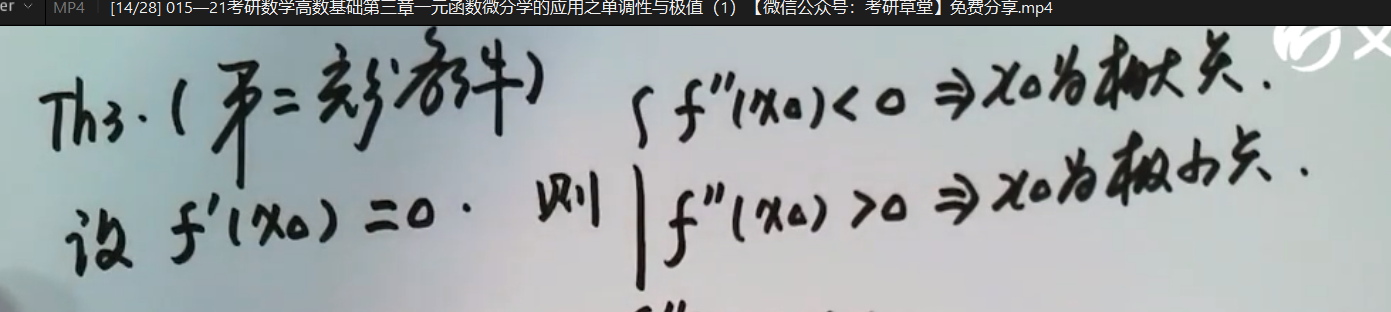 er MP4 [14/28] 015—21考研数学高数基础第三章一元函数微分学的应用之单调性与极值（1）【微信公众号：考研草堂】免费分享.mp4
Th3.(第二充分条件)
设 f'(x0)=0. 则
f''(x0)<0 ⇒ x0为极大点.
f''(x0)>0 ⇒ x0为极小点.